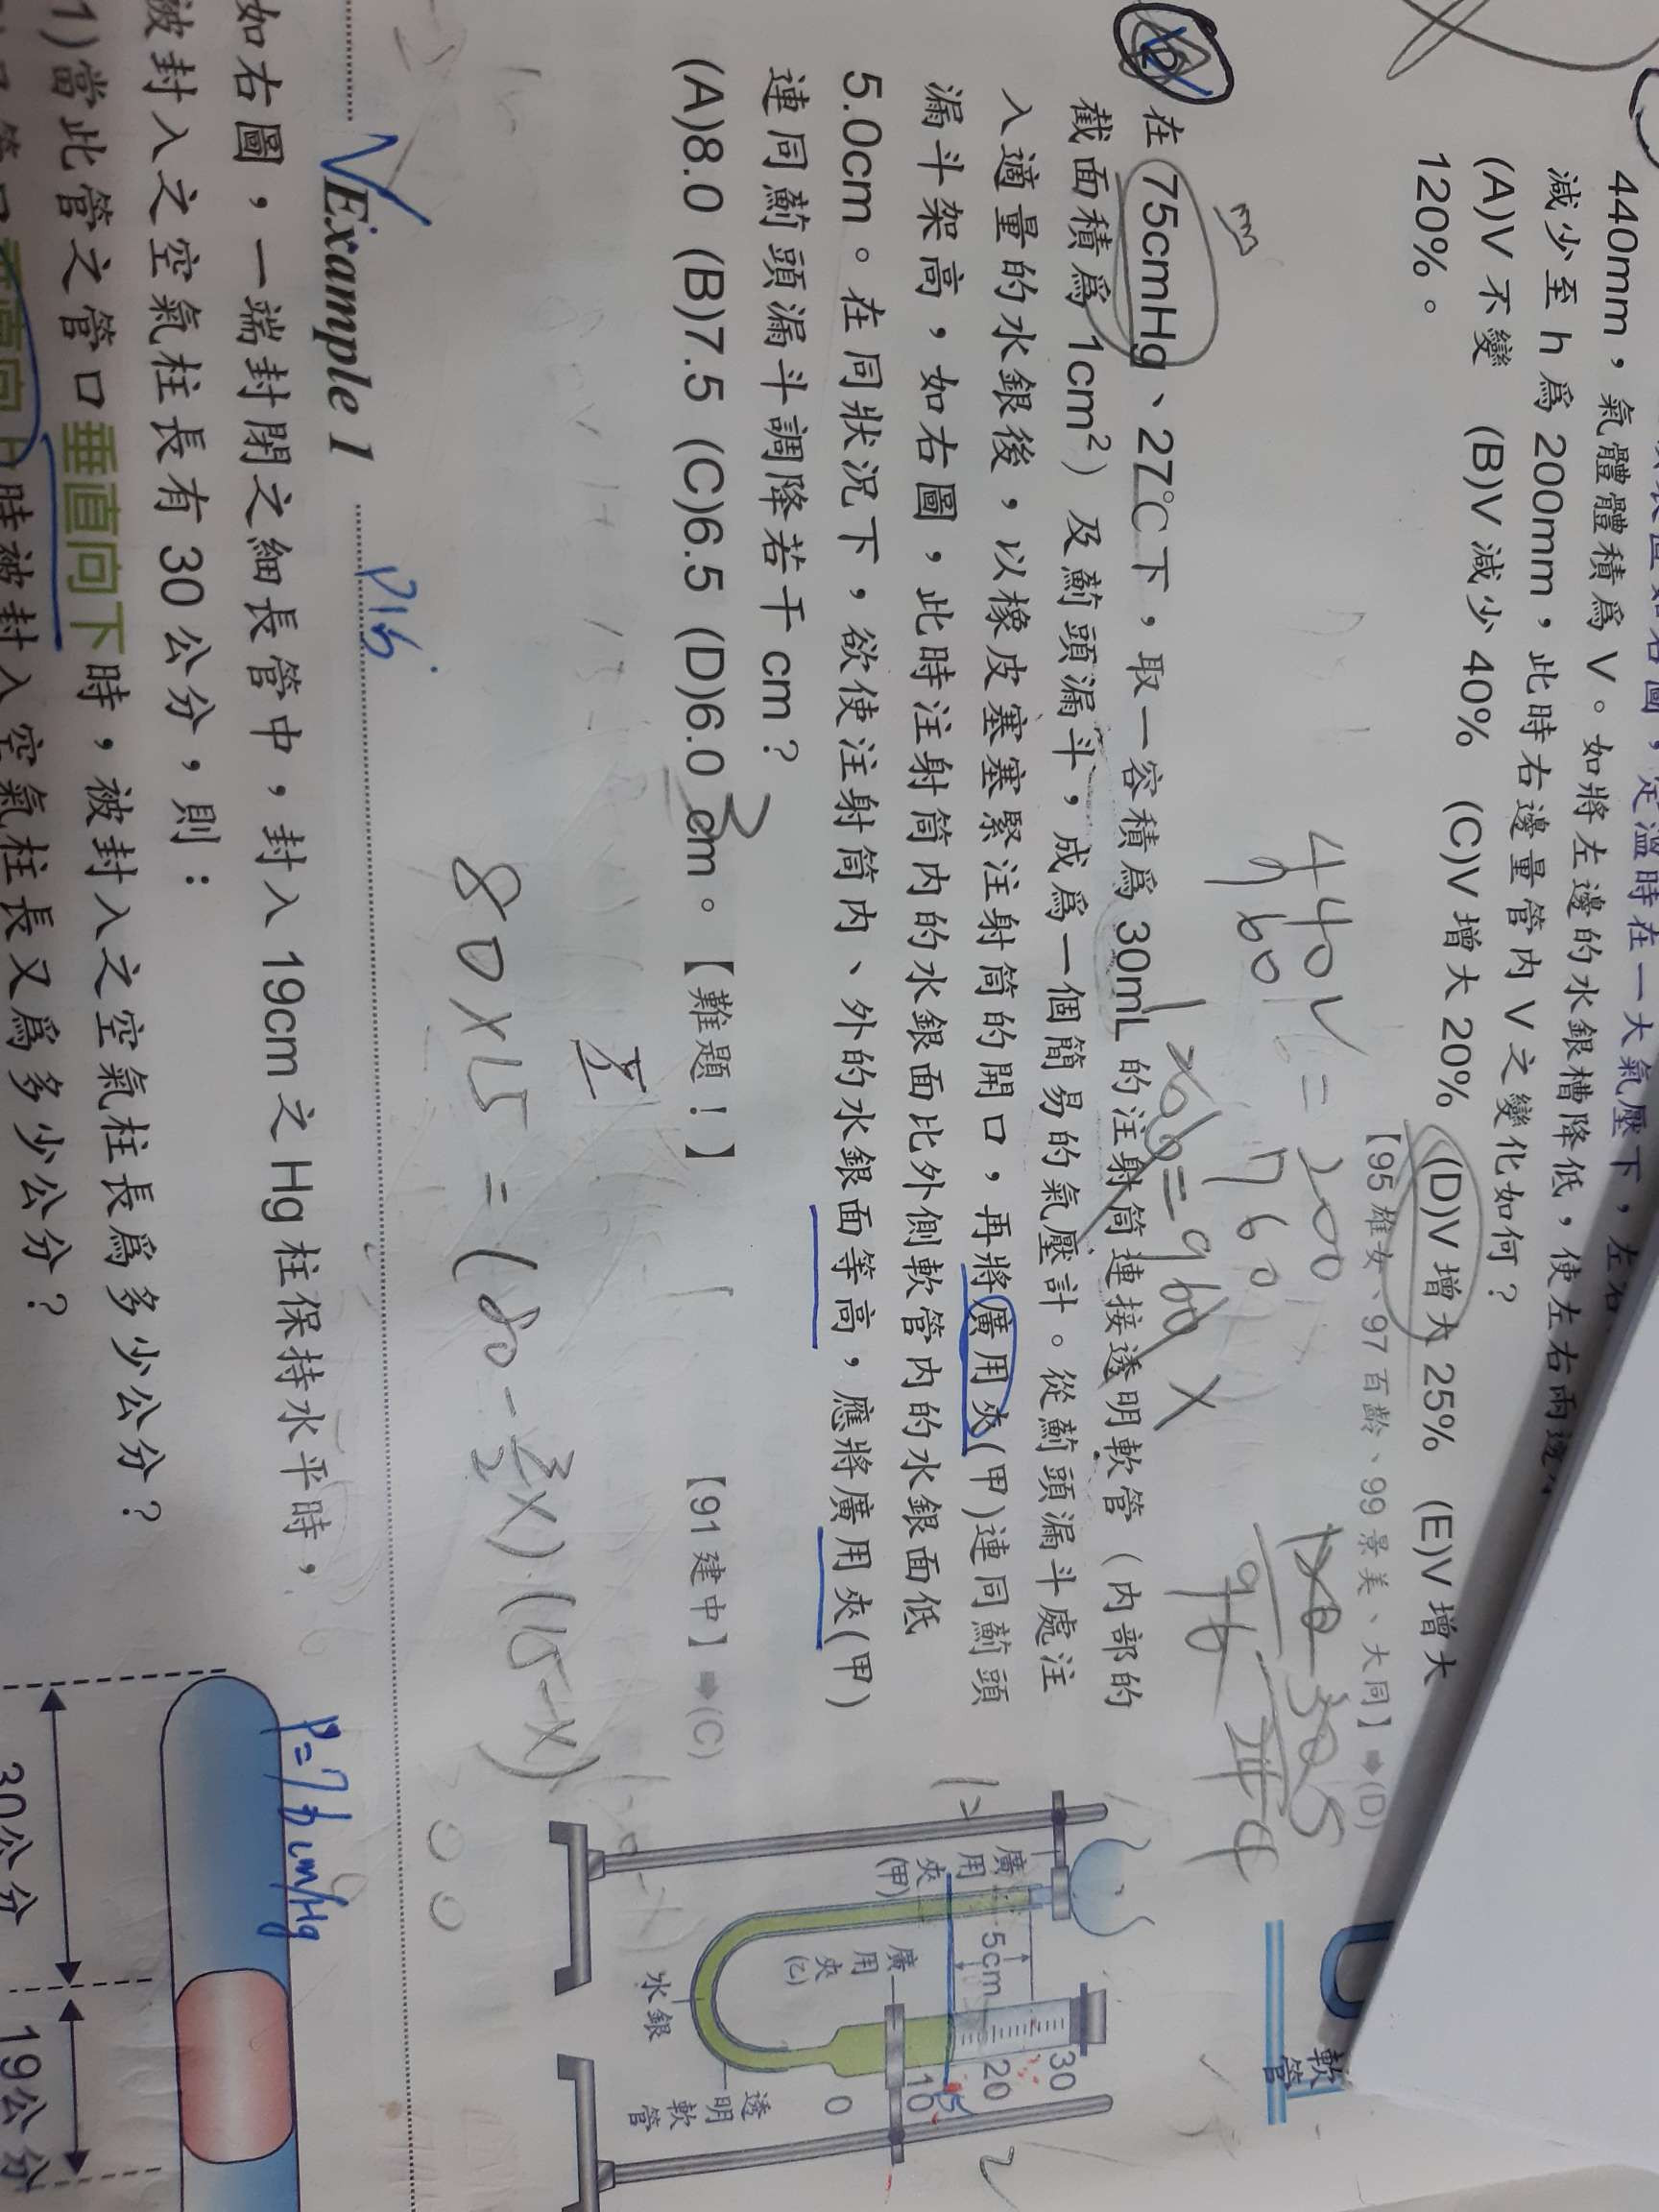 440mm，氣體體積爲 V。如將左邊的水銀槽降低，使左右兩邊
減少至 h 爲 200mm，此時右邊量管內 V 之變化如何？
(A)V 不變 (B)V 減少 40% (C)V 增大 20% (D)V 增大 25% (E)V 增大
120%。
【95 雄女、97 百齡、99 景美、大同】➡(D)
440V = 200
960
760
軟管
在 75cmHg、27℃下，取一容積爲 30mL 的注射筒連接透明軟管（內部的
截面積爲 1cm²）及薊頭漏斗，成爲一個簡易的氣壓計。從薊頭漏斗處注
入適量的水銀後，以橡皮塞塞緊注射筒的開口，再將廣用夾(甲)連同薊頭
漏斗架高，如右圖，此時注射筒內的水銀面比外側軟管內的水銀面低
5.0cm。在同狀況下，欲使注射筒內、外的水銀面等高，應將廣用夾(甲)
連同薊頭漏斗調降若干 cm？
(A)8.0 (B)7.5 (C)6.5 (D)6.0 cm。【難題！】
【91 建中】➡(C)
廣用夾(甲)
5cm
廣用夾(乙)
水銀
透明軟管
30
20
10
0
15
80×15 = (80 - 3/2 X)·(15-X)
Example 1
P16
如右圖，一端封閉之細長管中，封入 19cm 之 Hg 柱保持水平時，
被封入之空氣柱長有 30 公分，則：
1)當此管之管口垂直向下時，被封入之空氣柱長爲多少公分？
時被封入空氣柱長又爲多少公分？
P=76 cmHg
30公分
19公分